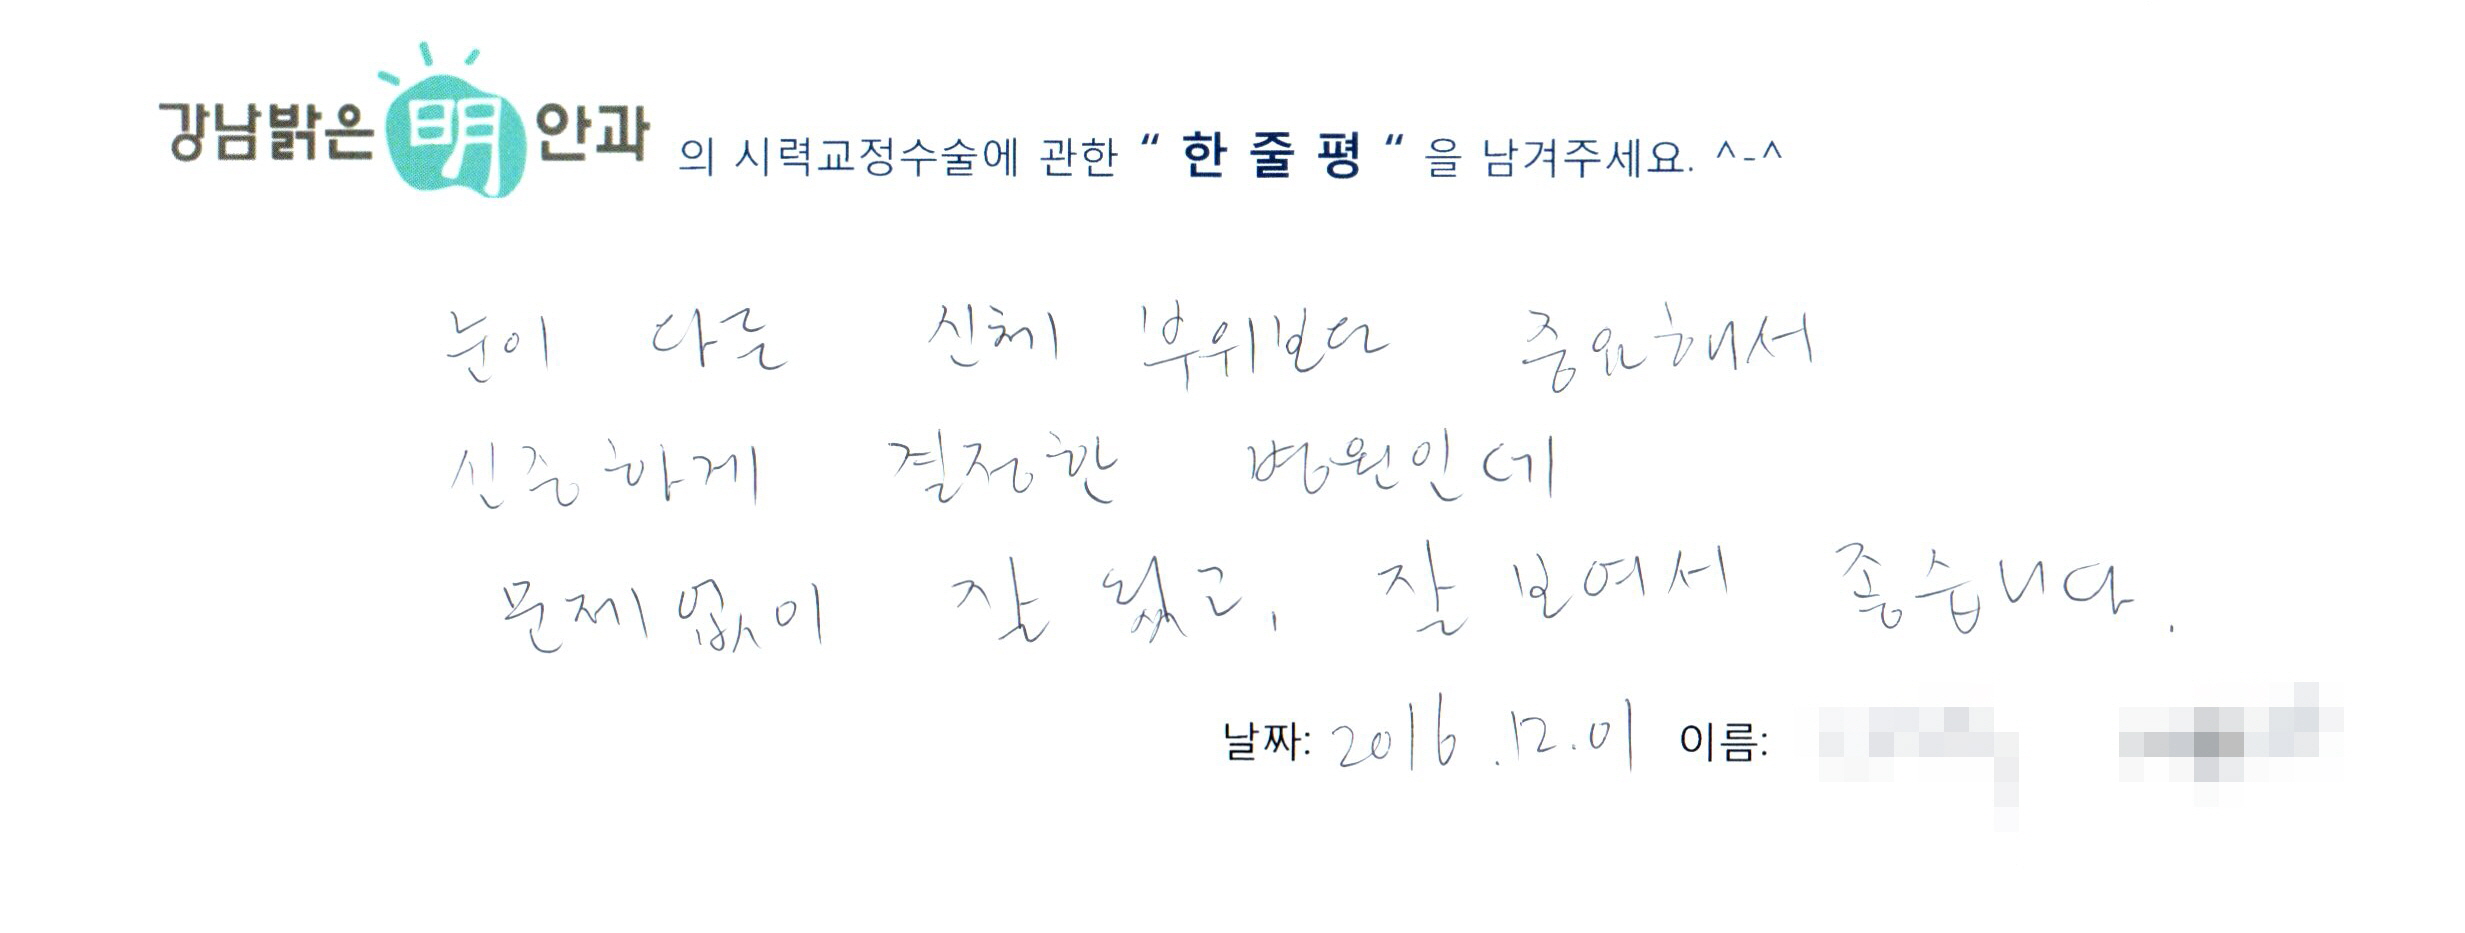 강남밝은明안과 의 시력교정수술에 관한 “ 한 줄 평 “ 을 남겨주세요. ^-^
눈이 다른 신체 부위보다 중요해서
신중하게 결정한 병원인데
문제없이 잘 됐고, 잘 보여서 좋습니다.
날짜: 2016.12.01 이름: